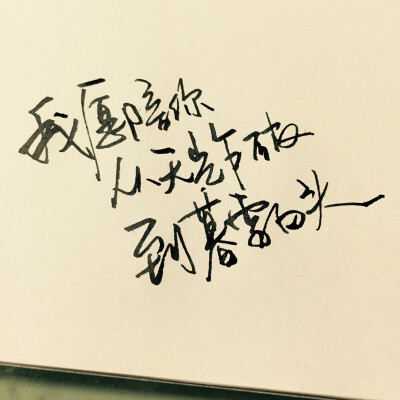 我愿陪你
从天光乍破
到暮雪白头